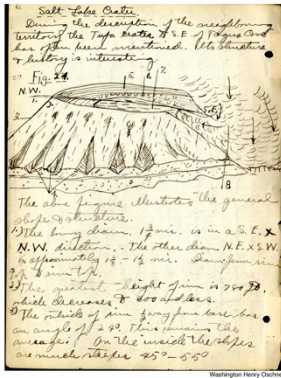 Salt Lake Crater.
During the description of the neighboring
territory the Tuff Crater S.E. of Pagua Cone
has often been mentioned. Its structure
& history is interesting.
Fig. 24.
N.W.
5.
6.
7.
1.
3.
8
The above figure illustrates the general
shape & structure.
1) The long diam, 1 3/4 mi. is in a S.E. x
N.W. direction. The other diam N.E. x S.W.
is approximately
The greatest height of rim is
which decreases to 200 and less.
3) The outside of rim from base has
an angle of 24°. This remains the
average. On the inside the slopes
are much steeper 45° – 55°
Washington Henry Ochsne